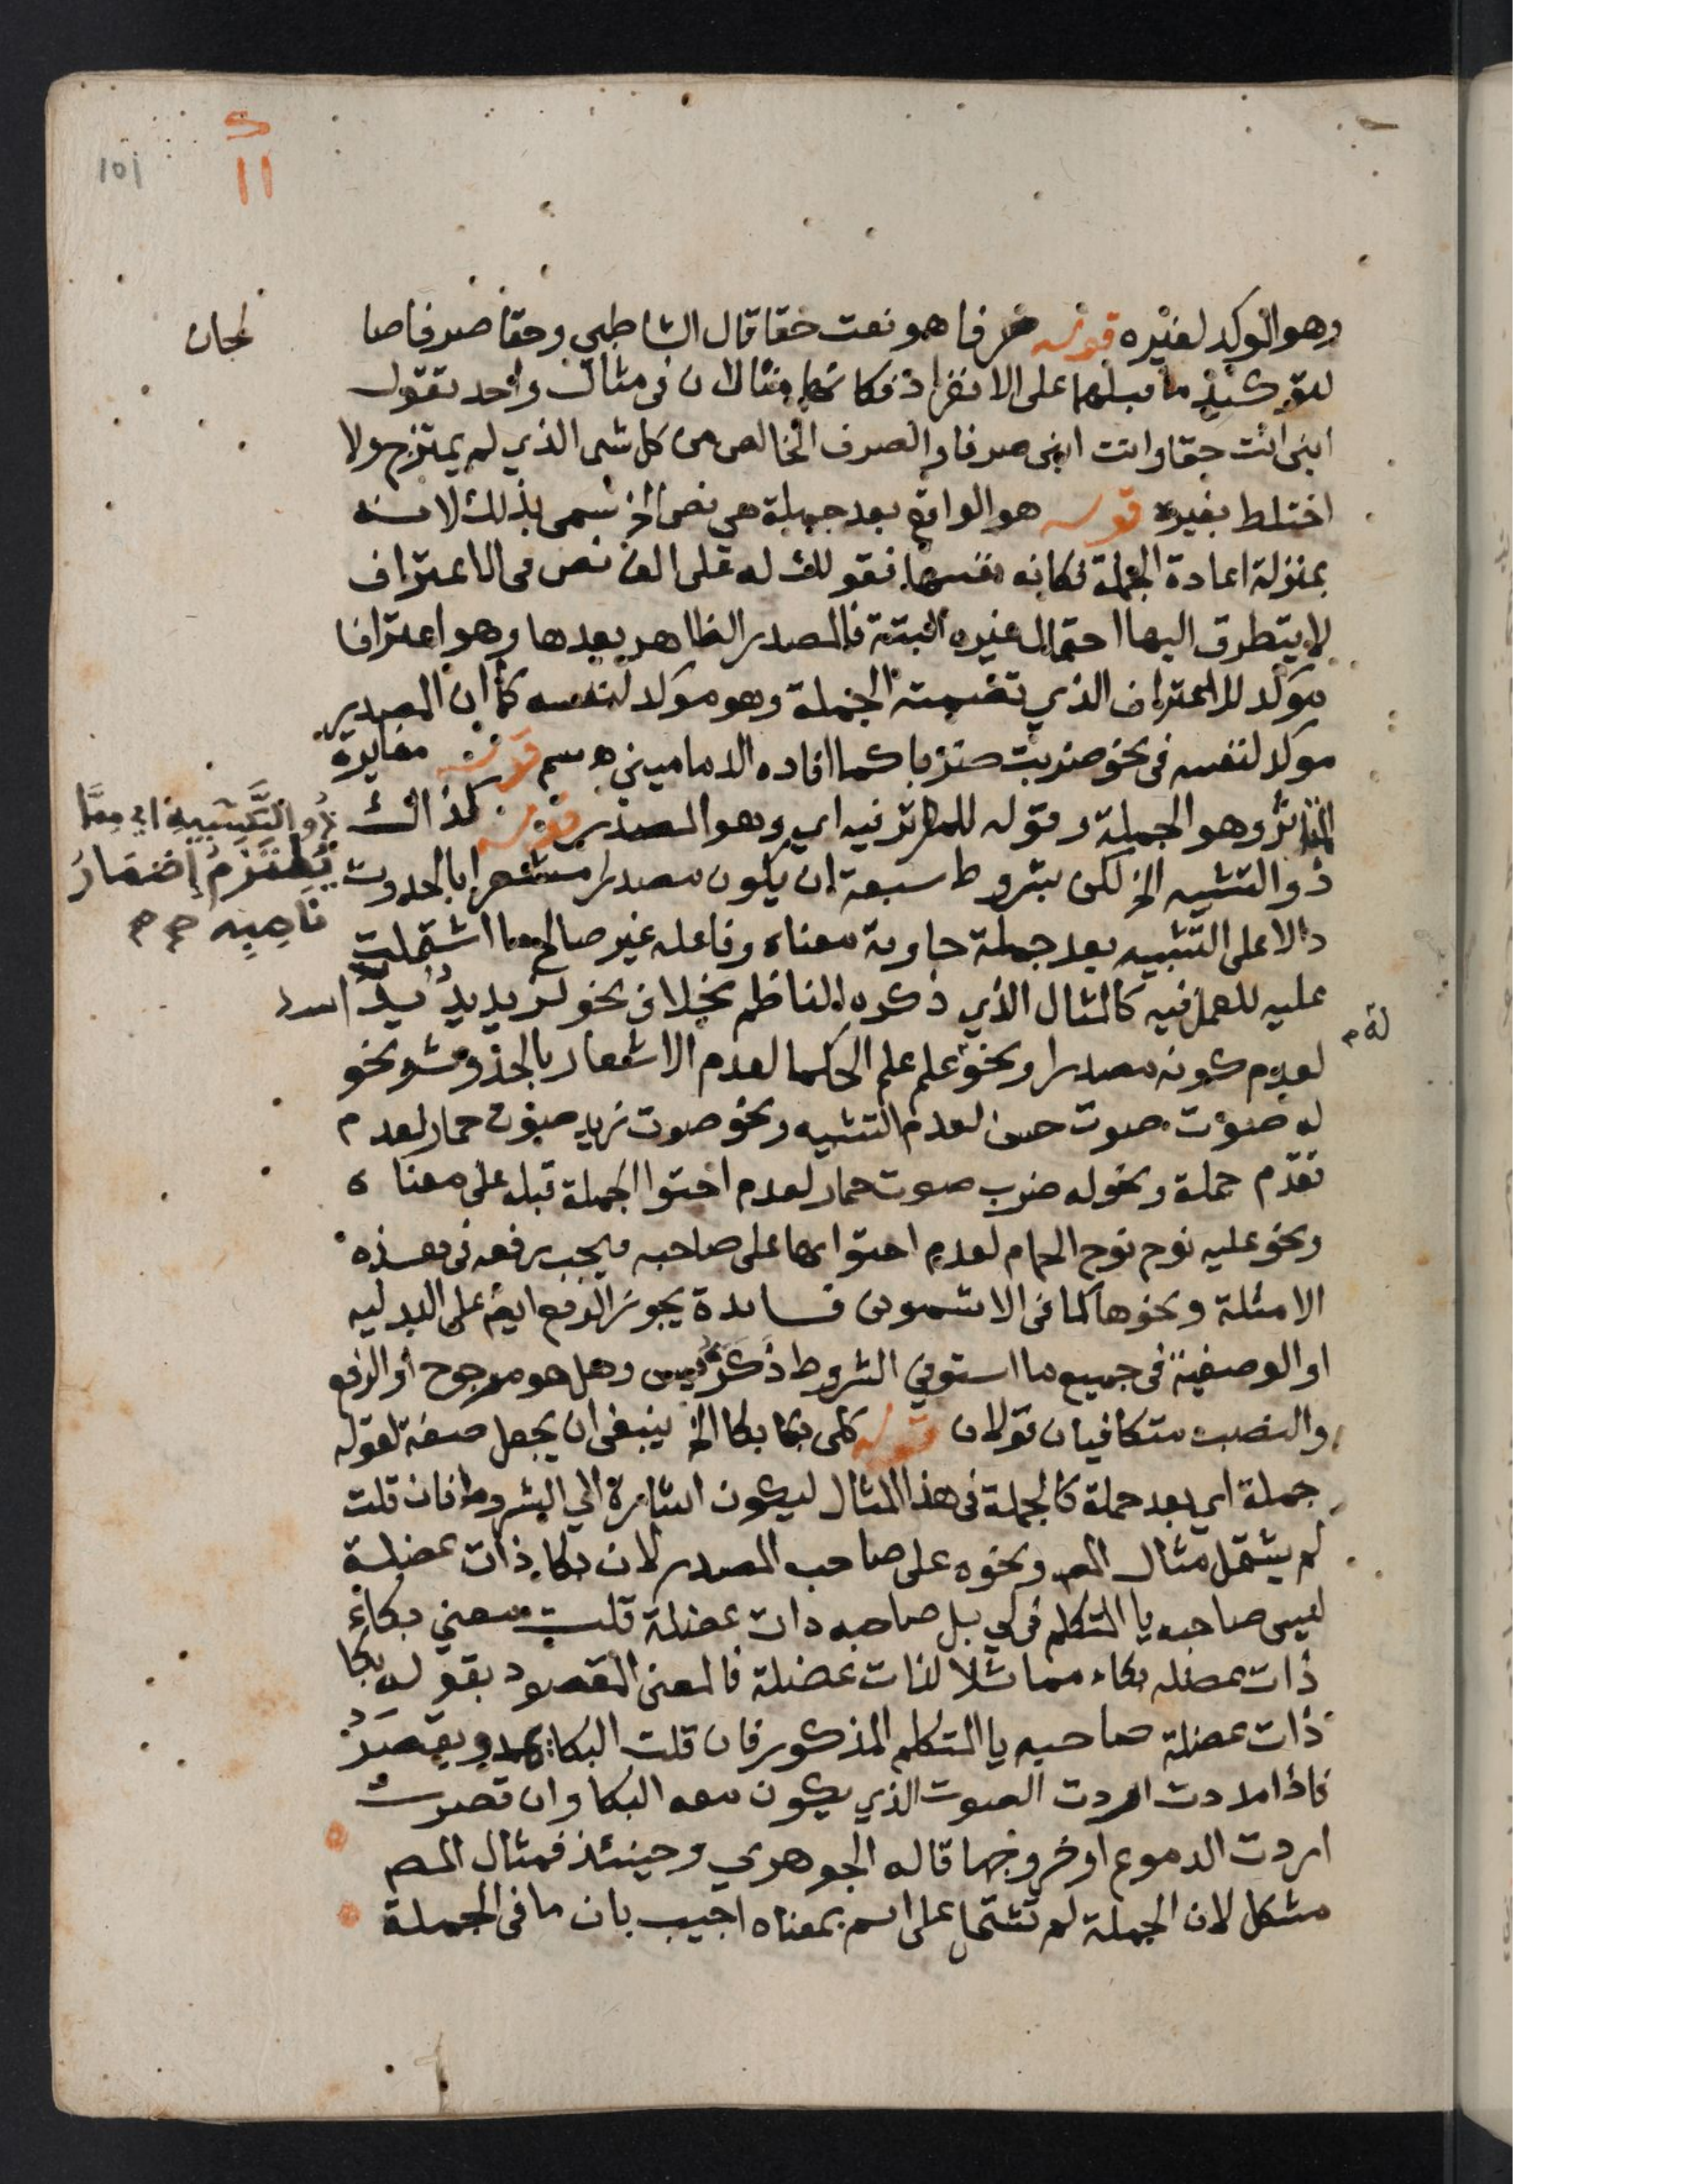 101
11
وهو الموكد لغيره قوله صرفا هو نعت حقا قال الشاطبي وحقا صرفا صا
لحان
لتوكيد ما قبلهما على الانفراد فكانهما مثالان في مثال واحد تقول
ابني انت حقا وانت ابني صرفا والصرف الخالص من كل شى الذي لم يمتزج ولا
اختلط بغيره قوله هو الواقع بعد جملة هي نص الخ سمى بذلك لانه
بمنزلة اعادة الجملة فكانه نفسها فقولك له على الف نص في الاعتراف
لا يتطرق اليها احتمال غيره البتة فالمصدر الظاهر بعدها وهو اعترافا
موكد للاعتراف الذي تضمنته الجملة وهو موكد لنفسه كما ان المصدر
موكد لنفسه في نحو ضربت ضربا كما افاده الدماميني ه سم قوله مغايرة
الموثر وهو الجملة وقوله للموثر فيه اي وهو المصدر قوله كذاك
ذو التشبيه الخ لكن بشروط سبعة ان يكون مصدرا مشعرا بالحدوث
ذُو التَّشْبِيهِ اي مِمَّا
يُلْتَزَمُ إِضْمَارُ
نَاصِبِه
دالا على التشبيه بعد جملة حاوية معناه وفاعله غير صالح ما اشتملت
عليه للعمل فيه كالمثال الذي ذكره الناظم بخلاف نحو لزيد يدٌ يدُ اسد
لعدم كونه مصدرا ونحو علم علم الحكما لعدم الاشعار بالحدوث ونحو
له م
له صوت صوت حسن لعدم التشبيه ونحو صوت زيد صوت حمار لعدم
تقدم جملة ونحو له ضرب صوت حمار لعدم احتوا الجملة قبله على معناه
ونحو عليه نوح نوح الحمام لعدم احتوائها على صاحبه فيجب رفعه في هذه
الامثلة ونحوها كما في الاشموني فائدة يجوز الرفع ايضا على البدليه
او الوصفية في جميع ما استوفي الشروط ذكره يس وهل هو مرجوح او الرفع
والنصب متكافيان قولان قوله كلى بكا بكا الخ ينبغي ان يجعل صفة لقوله
جملة اي بعد جملة كالجملة في هذا المثال ليكون اشارة الي الشروط فان قلت
لم يشتمل مثال المص ونحوه على صاحب المصدر لان بكا ذات عضلة
ليس صاحبه يا المتكلم في لي بل صاحبه ذات عضلة قلت معني بكاء
ذات عضله بكاء مماثلا لذات عضلة فالمعنى المقصود بقوله بكا
ذات عضلة صاحبه يا المتكلم المذكور فان قلت البكا يمد ويقصر
فاذا مددت اردت الصوت الذي يكون معه البكا وان قصرت
اردت الدموع او خروجها قاله الجوهري وحينئذ فمثال المص
مشكل لان الجملة لم تشتمل على اسم بمعناه اجيب بان ما في الجملة